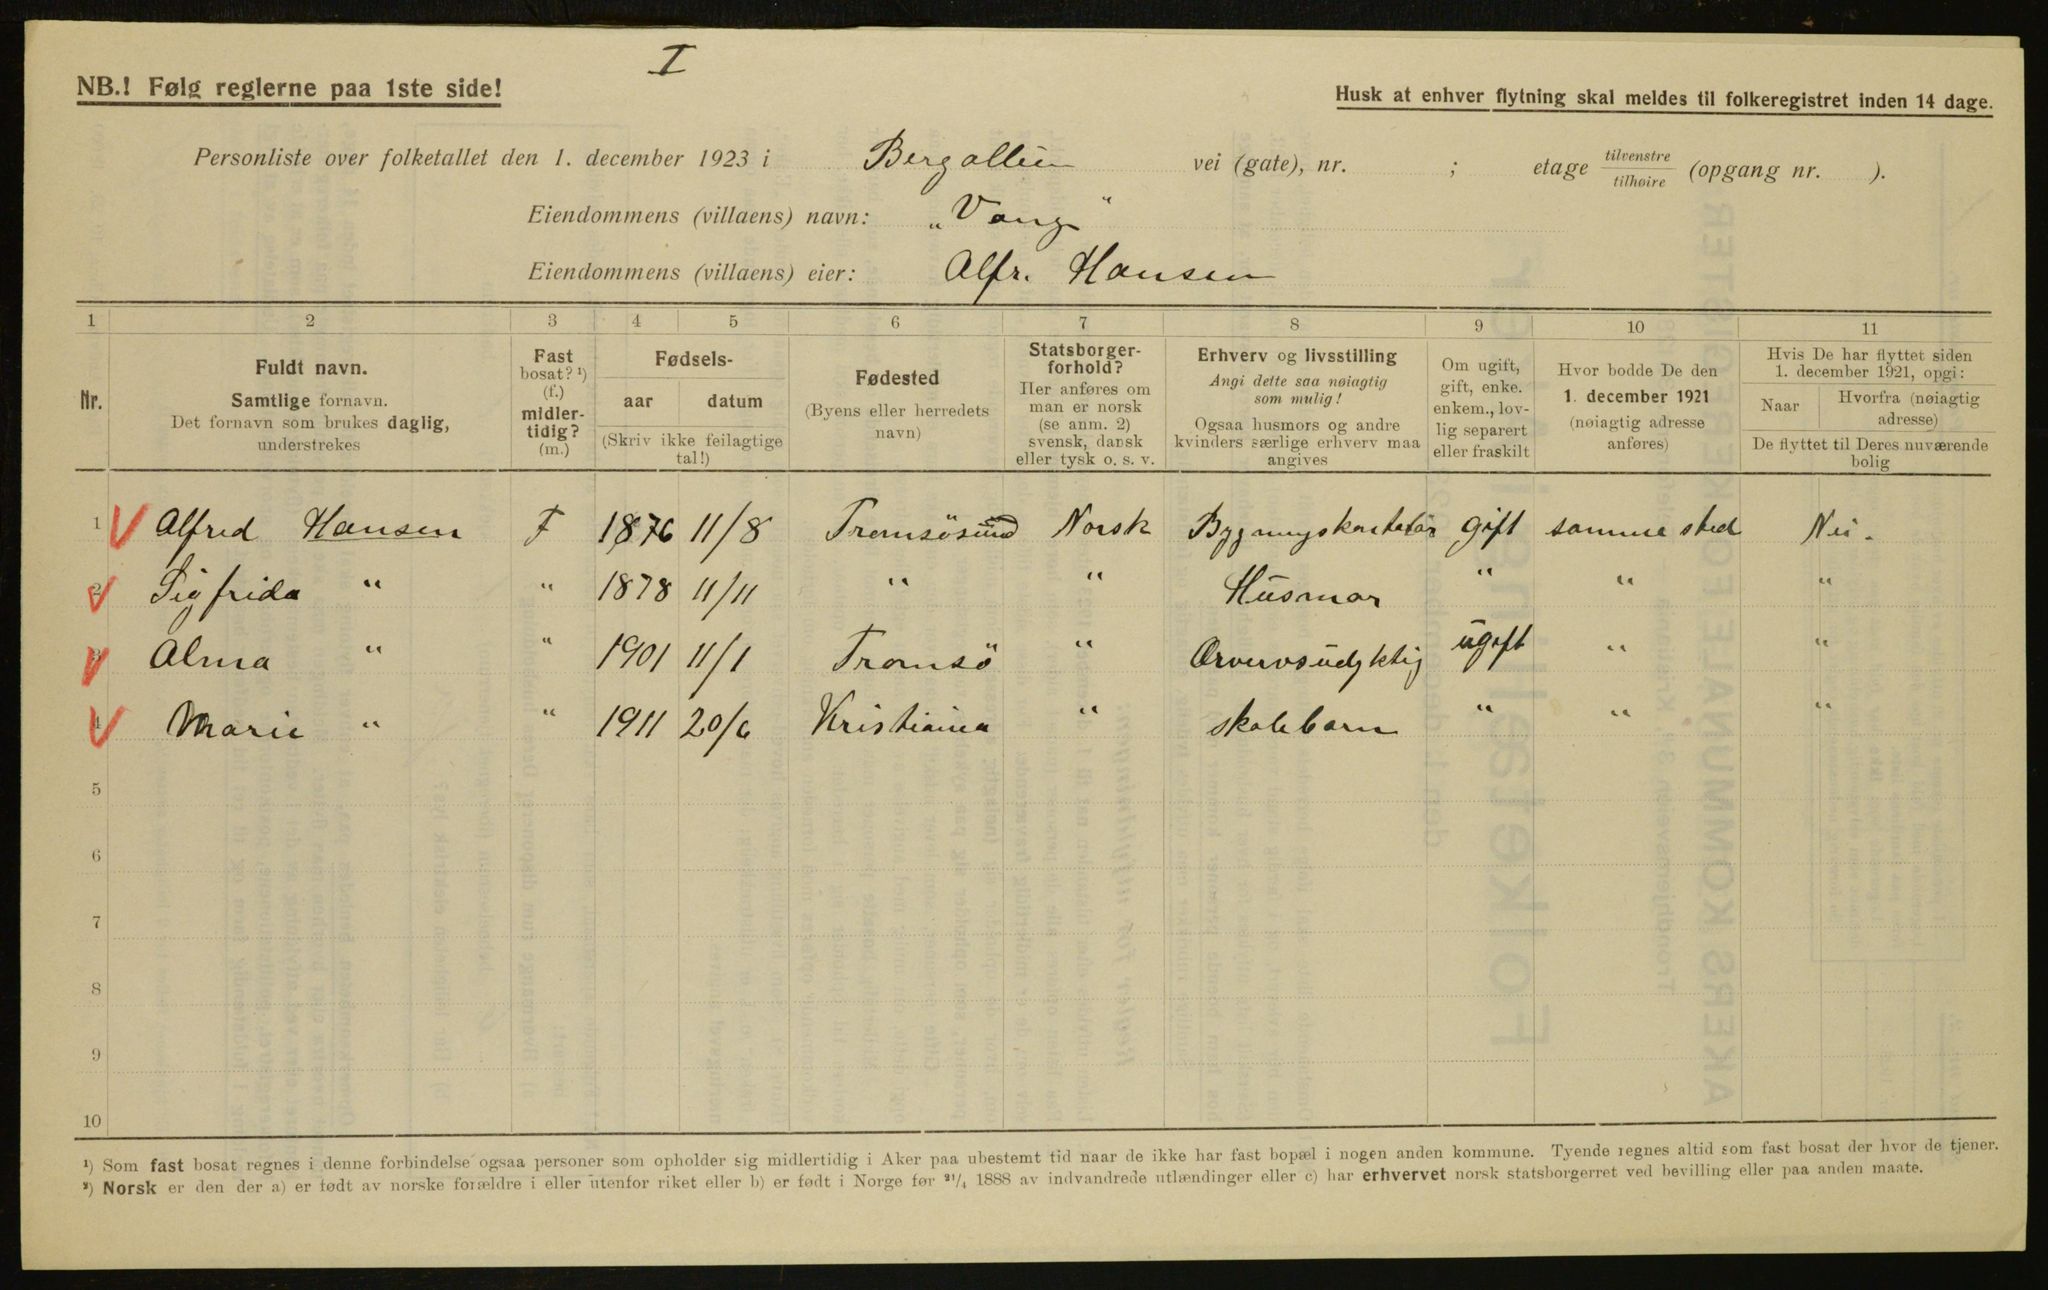 I
NB.! Følg reglerne paa 1ste side!
Husk at enhver flytning skal meldes til folkeregistret inden 14 dage.
Personliste over folketallet den 1. december 1923 i Bergallèen vei (gate), nr. ; etage tilvenstre/tilhøire (opgang nr. ).
Eiendommens (villaens) navn: „Vang“
Eiendommens (villaens) eier: Alfr. Hansen
1 2 3 4 5 6 7 8 9 10 11
Nr.
Fuldt navn.
Samtlige fornavn.
Det fornavn som brukes daglig,
understrekes
Fast
bosat? ¹)
(f.)
midler-
tidig?
(m.)
Fødsels-
aar datum
(Skriv ikke feilagtige
tal!)
Fødested
(Byens eller herredets
navn)
Statsborger-
forhold?
Her anføres om
man er norsk
(se anm. 2)
svensk, dansk
eller tysk o. s. v.
Erhverv og livsstilling
Angi dette saa nøiagtig
som mulig!
Ogsaa husmors og andre
kvinders særlige erhverv maa
angives
Om ugift,
gift, enke.
enkem., lov-
lig separert
eller fraskilt
Hvor bodde De den
1. december 1921
(nøiagtig adresse
anføres)
Hvis De har flyttet siden
1. december 1921, opgi:
Naar Hvorfra (nøiagtig
adresse)
De flyttet til Deres nuværende
bolig
1 Alfred Hansen F 1876 11/8 Tromsösund Norsk gift samme sted Nei.
2 Sigfrida " " 1878 11/11 " " Husmor " " "
3 Alma " " 1901 11/1 Tromsö " Ervervsudyktig ugift " "
4 Marie " " 1911 20/6 Kristiania " skolebarn " " "
5
6
7
8
9
10
¹) Som fast bosat regnes i denne forbindelse ogsaa personer som opholder sig midlertidig i Aker paa ubestemt tid naar de ikke har fast bopæl i nogen anden kommune. Tyende regnes altid som fast bosat der hvor de tjener.
²) Norsk er den der a) er født av norske forældre i eller utenfor riket eller b) er født i Norge før ²¹/₄ 1888 av indvandrede utlændinger eller c) har erhvervet norsk statsborgerret ved bevilling eller paa anden maate.